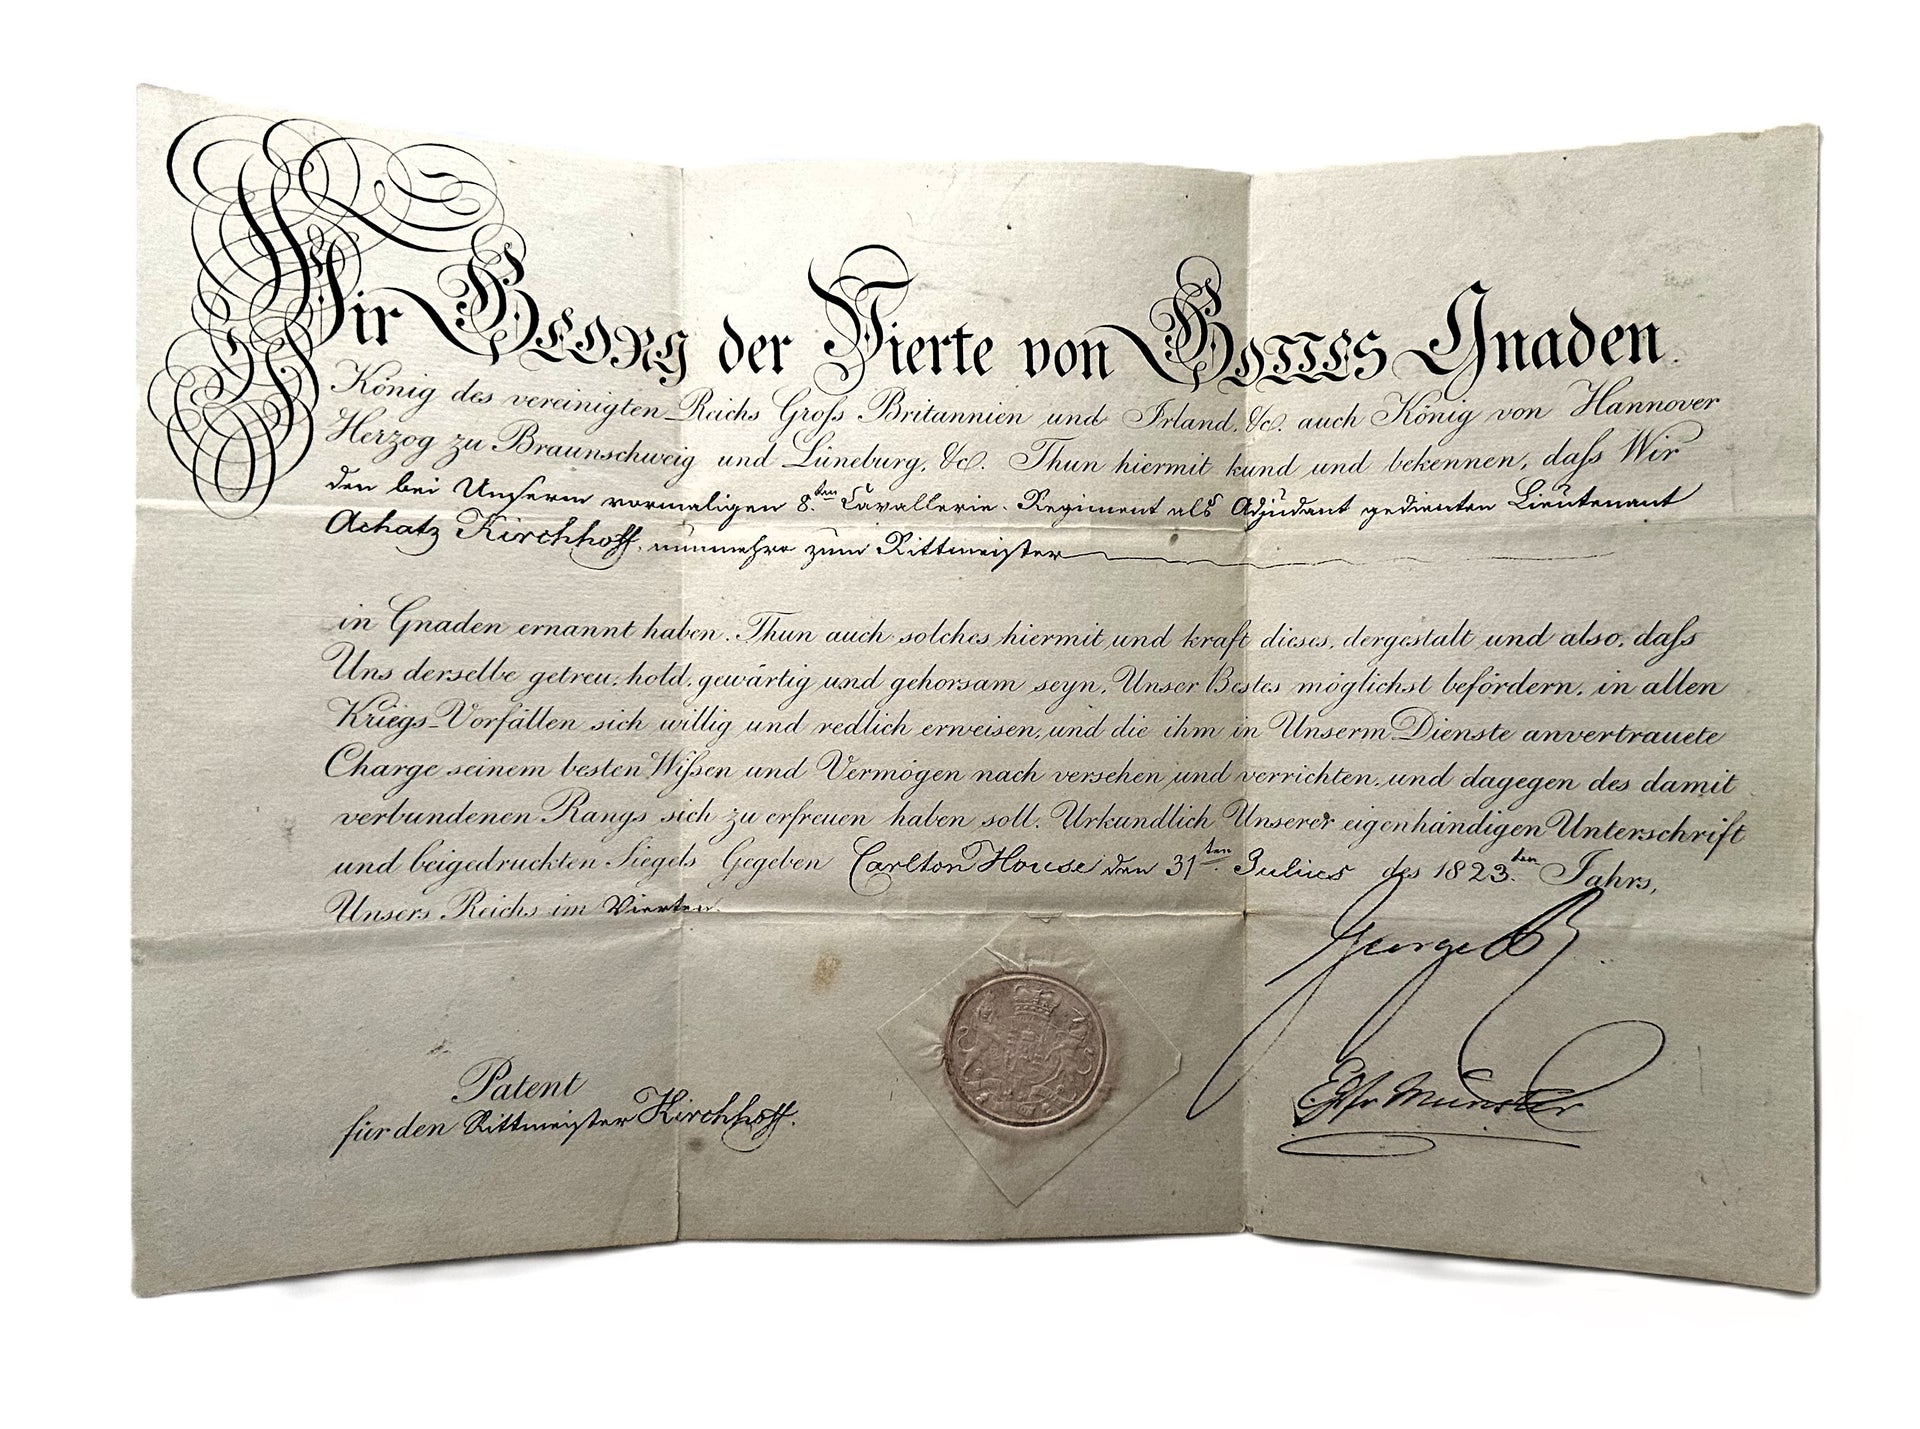 Wir Georg der Vierte von Gottes Gnaden.
König des vereinigten Reichs Groſs Britannien und Irland, &c. auch König von Hannover
Herzog zu Braunschweig und Lüneburg, &c. Thun hiermit kund und bekennen, daſs Wir
den bei Unserm vormaligen 8.ten Cavallerie-Regiment als Adjudant gedienten Lieutenant
Achatz Kirchhoff, nunmehro zum Rittmeister
in Gnaden ernannt haben. Thun auch solches hiermit und kraft dieses, dergestalt und also, daſs
Uns derselbe getreu, hold, gewärtig und gehorsam seyn, Unser Bestes möglichst befördern, in allen
Kriegs-Vorfällen sich willig und redlich erweisen, und die ihm in Unserm Dienste anvertrauete
Charge seinem besten Wiſsen und Vermögen nach versehen und verrichten, und dagegen des damit
verbundenen Rangs sich zu erfreuen haben soll. Urkundlich Unserer eigenhändigen Unterschrift
und beigedruckten Siegels Gegeben Carlton House den 31ten Julius des 1823.ten Jahrs,
Unsers Reichs im Vierten.
George R
Münster
Patent
für den Rittmeister Kirchhoff.